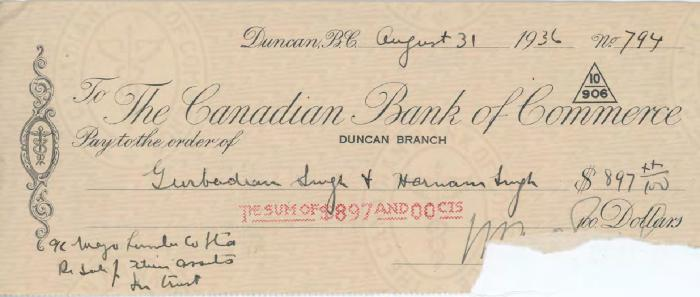 Duncan, B.C. August 31 1936 No 794
10
906
To The Canadian Bank of Commerce
Pay to the order of DUNCAN BRANCH
Gurbadian Singh & Hernam Singh $ 897 xx/100
THE SUM OF $897 AND 00 CTS
/100 Dollars
a/c Mayo Lumber Co Ltd
Re Sale of Their assets
In Trust